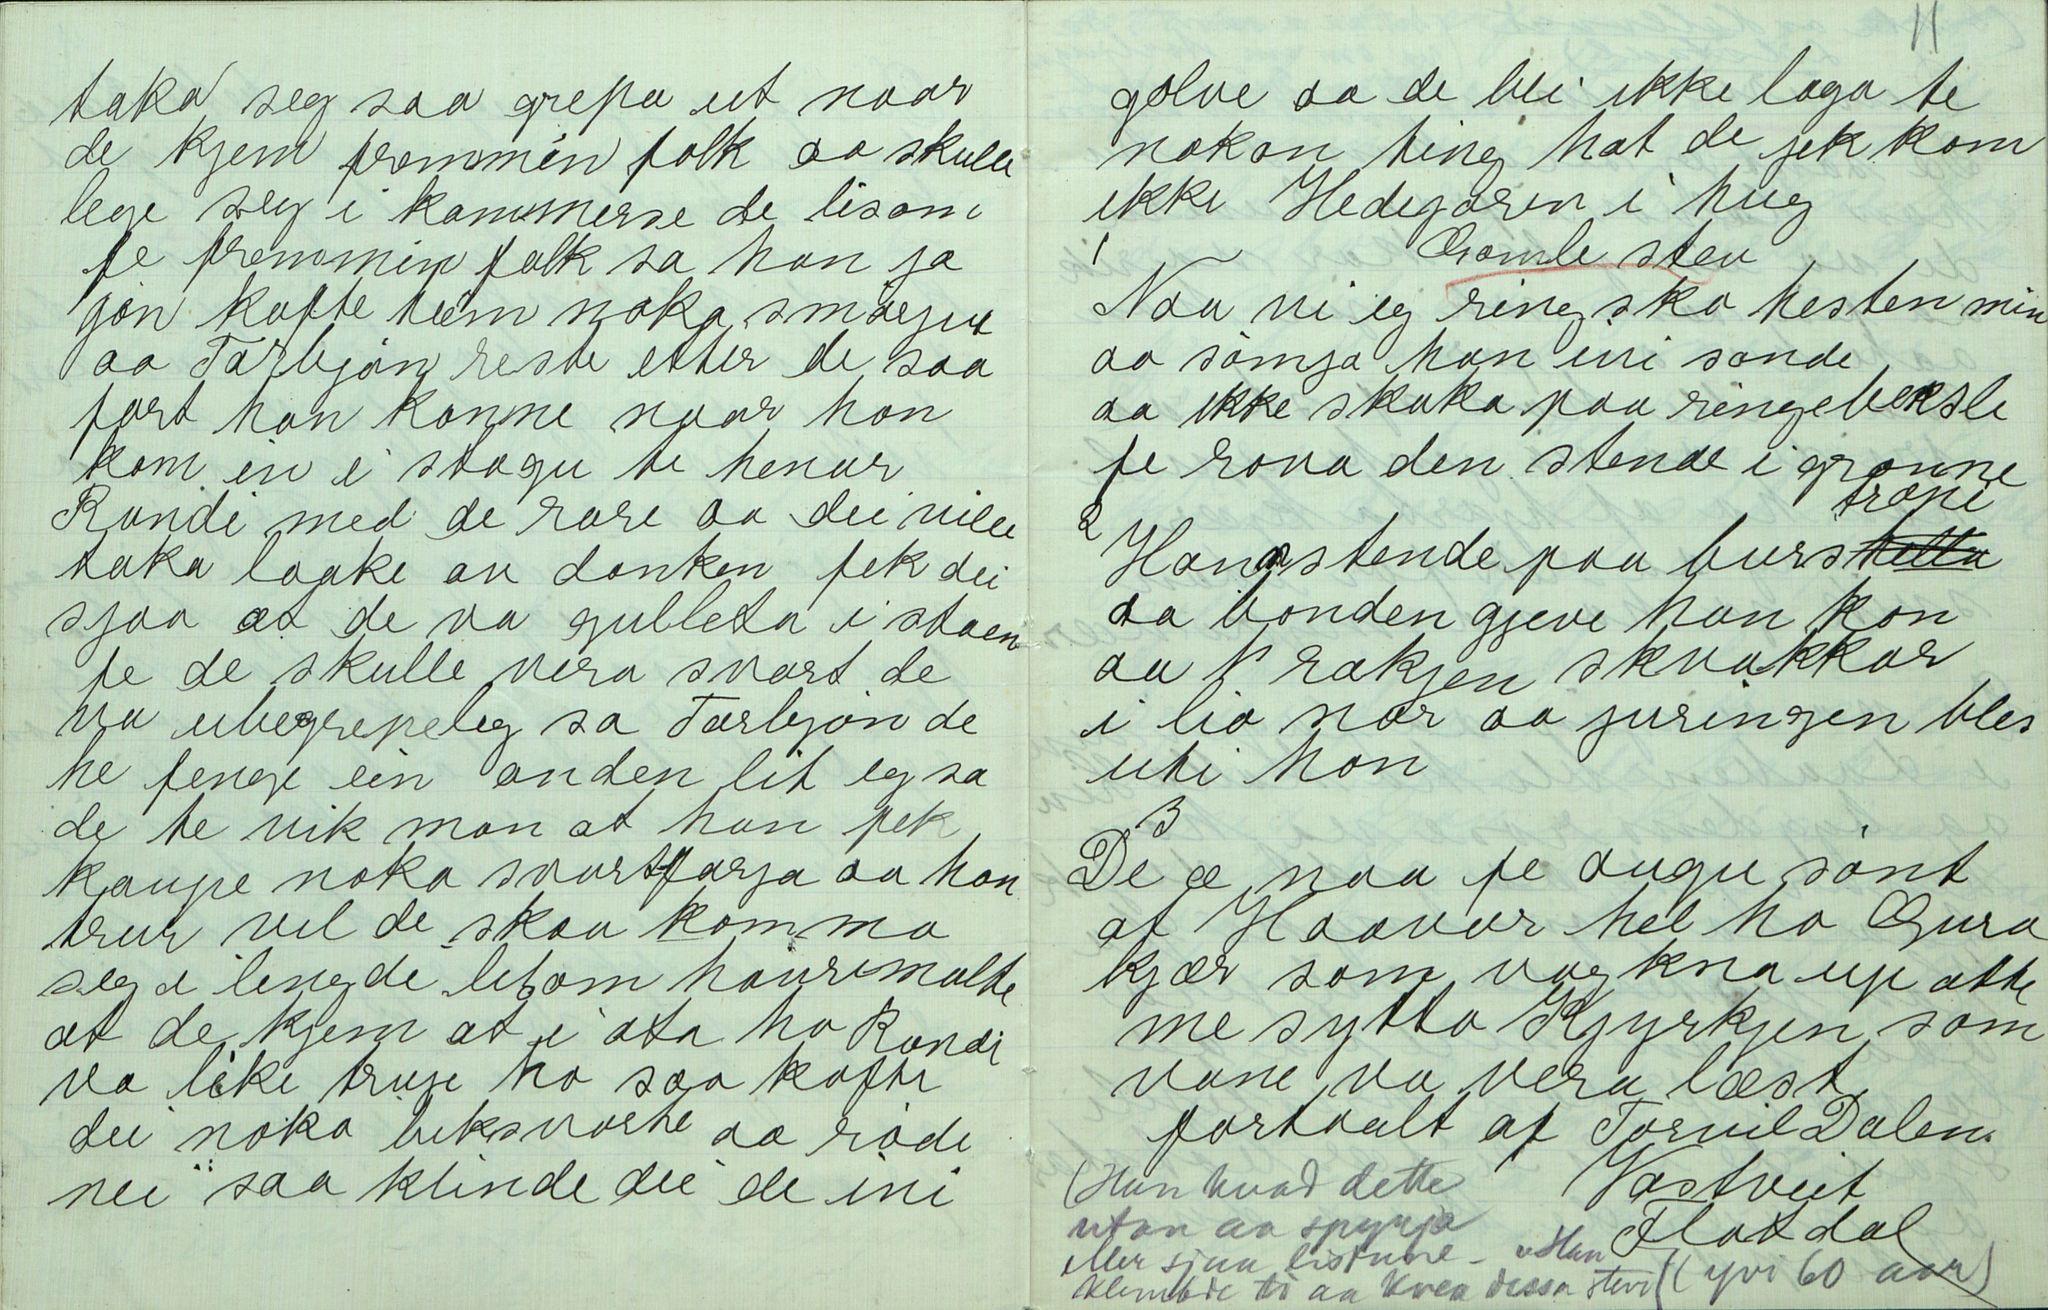 taka seg saa grepa ut naar
de kjem fremmin folk aa skulle
lege seg i kammerse de lisom
fe fremmin folk sa han ja
jön kofte heim noka
aa Tarbjön reste etter de saa
fort han konne naar han
kom in i stogu te henar
Randi med de rare aa dei ville
taka laake av danken fek dei
sjaa at de va gulleta i staen
fe de skulle vera svart de
va ubegrepeleg sa Tarbjön de
he fenge ein anden lit eg sa
de te vik man at han fek
kaupe noka svartfarja aa han
trur vel de skaa komma
seg i lengde lisom
at de kjem at i ata ho Randi
va like truge ho saa kofte
dei noka beksvarte aa röde
nei saa klinde dei de ini
11
golve sa de blei ikke laga te
nokon ting hat de jek kom
ikke Hedegaren i hug
Gamle stev
1
Naa vi eg ringsko hesten min
aa sömja han uvi sande
aa ikke skaka paa ringebeksle
fe rova den stende i gronne
2
Hanan stende paa burs trøni
aa bonden gjeve han kon
aa rakjen skvakkar
i lia nor aa juringen bles
uti hon
3
De æ naa fe augu sönt
at Haavar hel ho Gura
kjær som vog kna up atte
me sytta Kjyrkjen som
vane va vera læst
fortaalt af Torvil Dalen
Vastveit
Flatdal
(yvi 60 aar)
(Han kvad dette
utan aa spyrja
eller sjaa listune - Han
klembde ti aa kvea dessa stevi